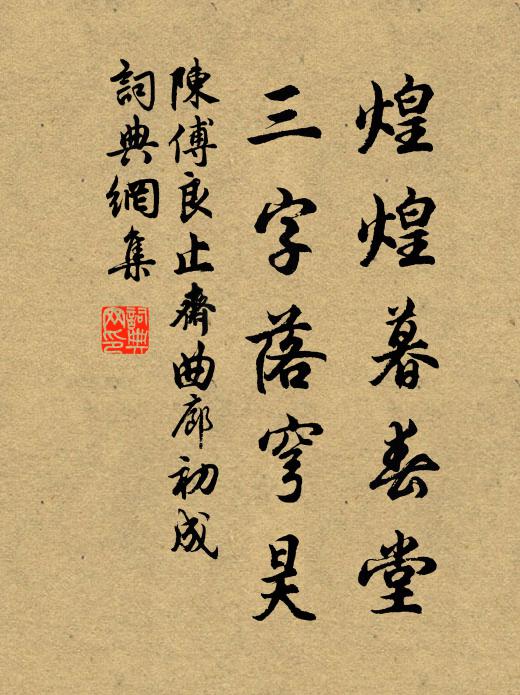 煌煌暮春堂
三字落穹昊
陳傅良止齋曲廊初成
詞典網集
詞典網印